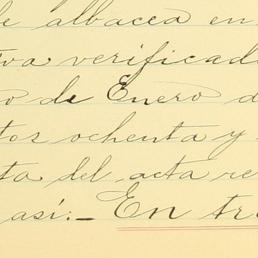 de albacea en
va verificada
o de Enero d
tos ochenta y
ta del acta re
así:- En tre